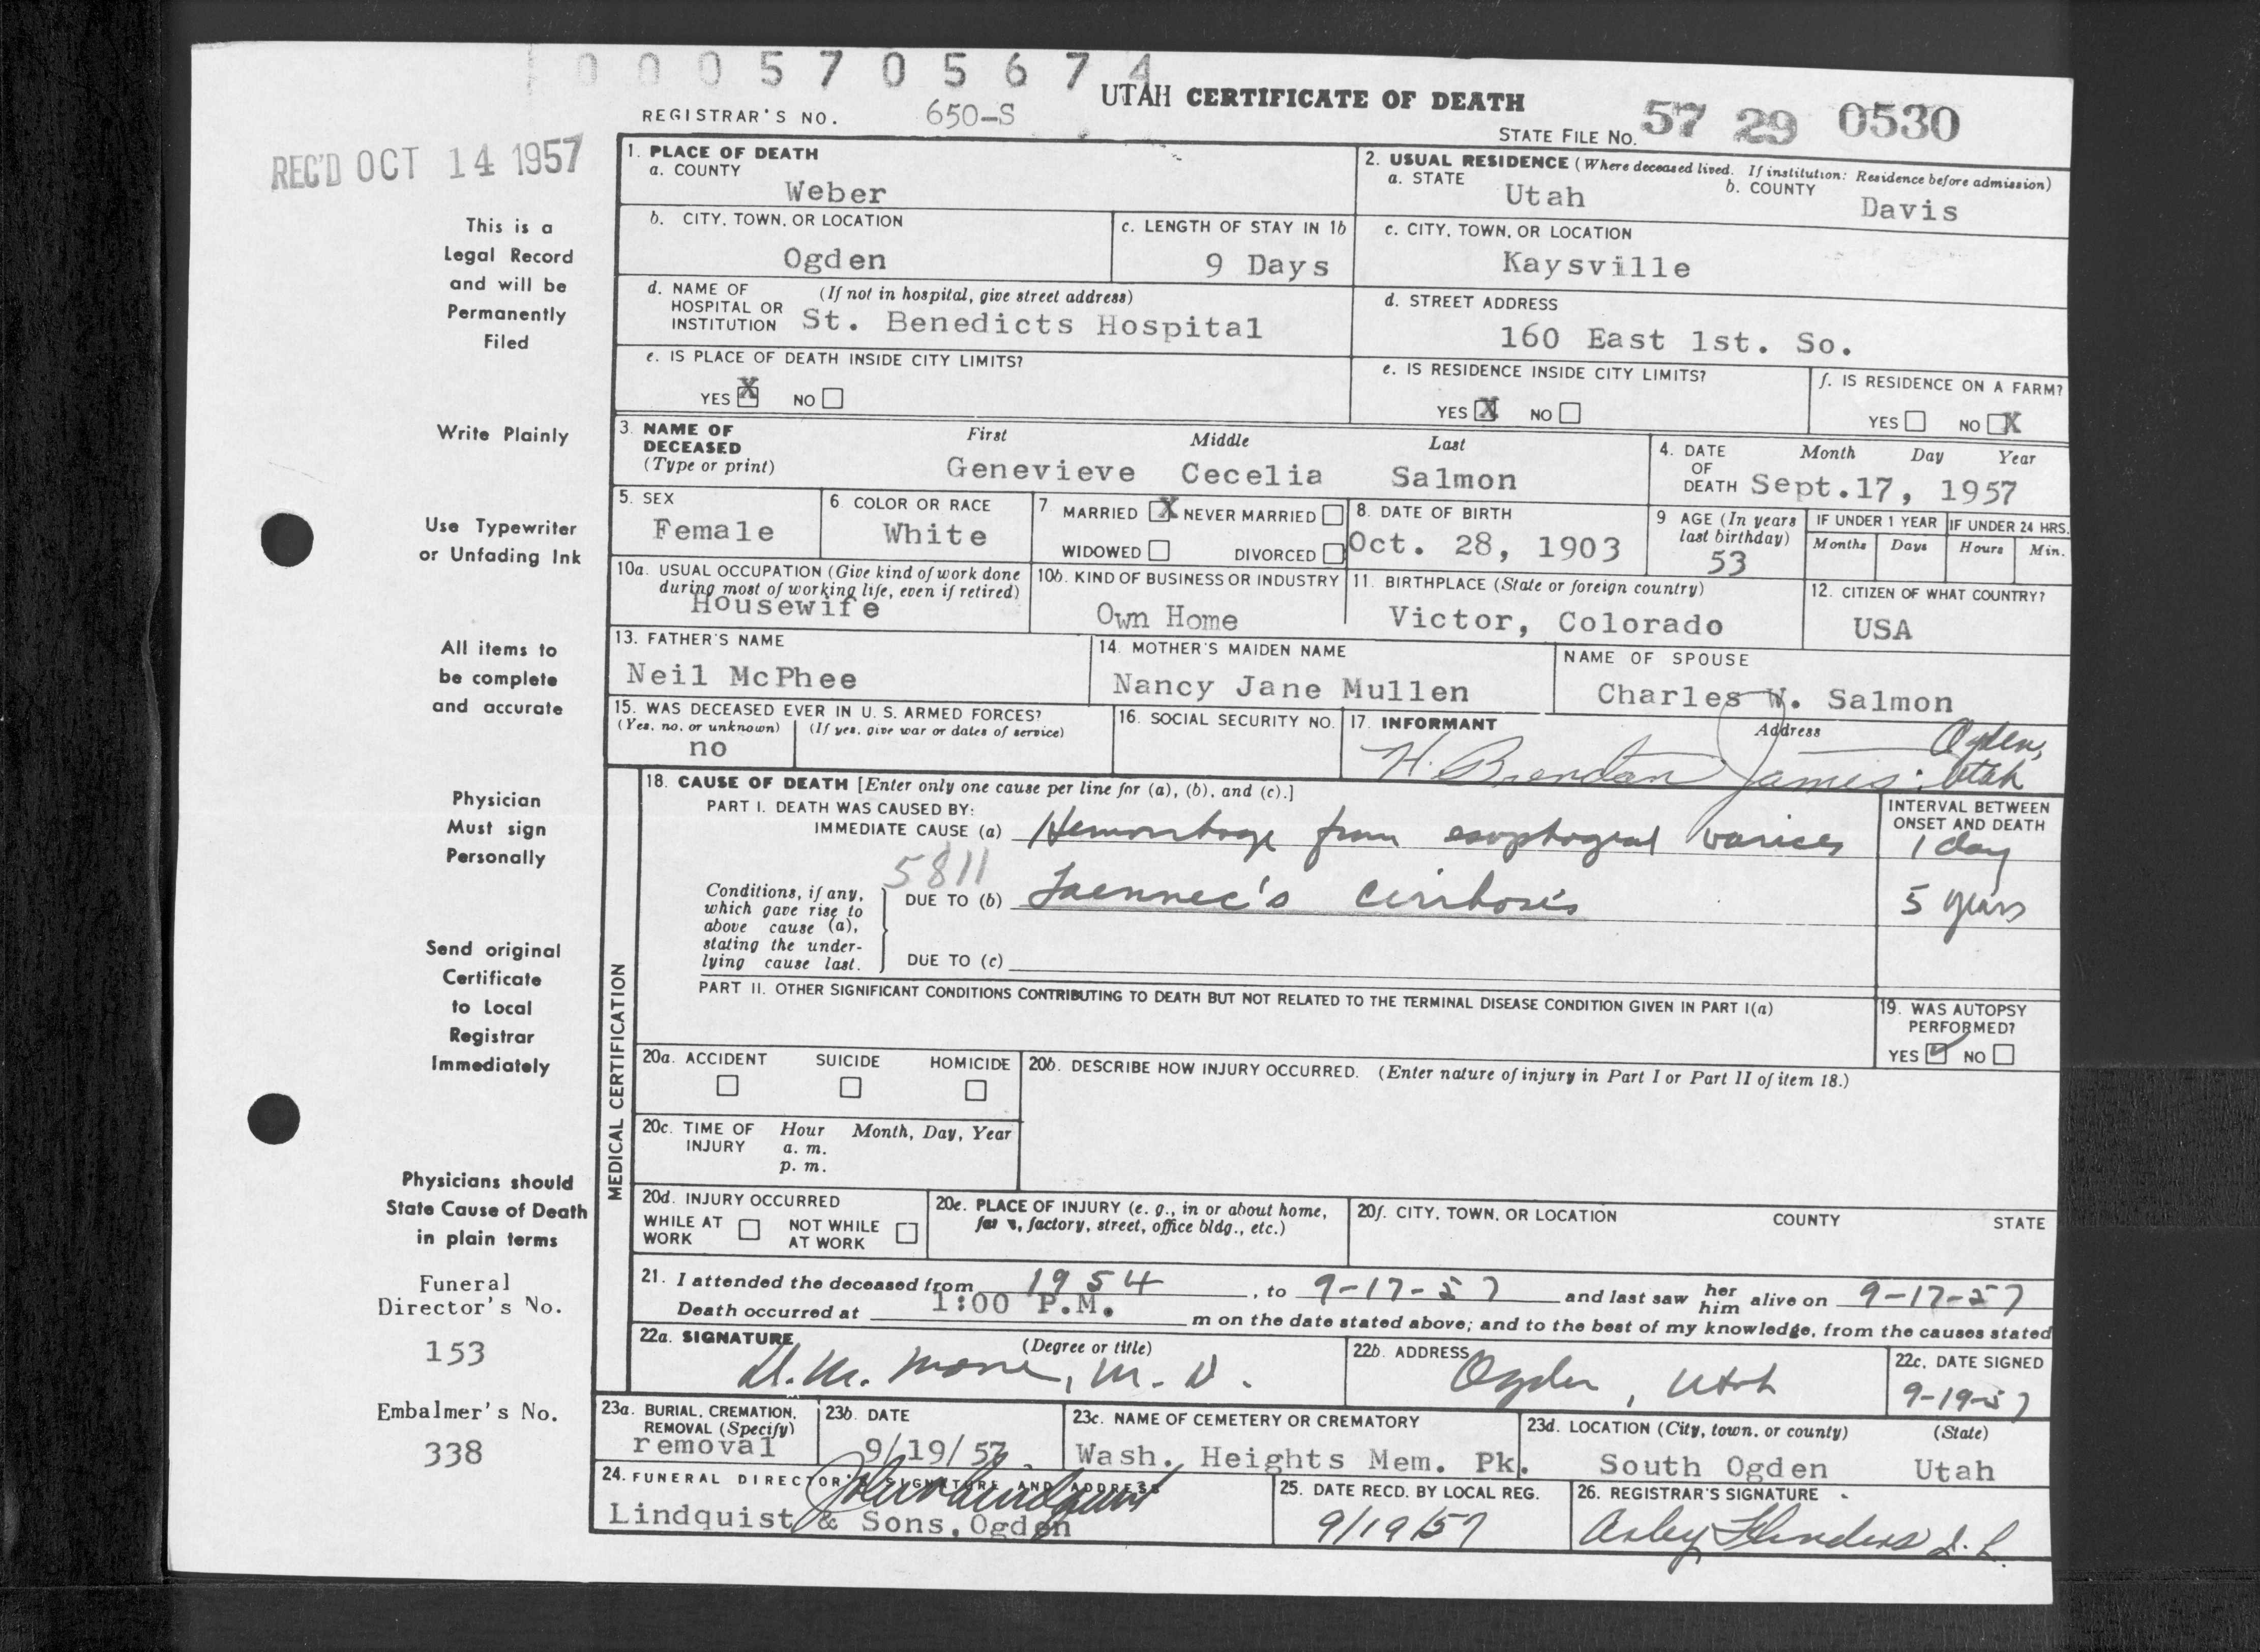 0005705674
UTAH CERTIFICATE OF DEATH
REGISTRAR'S NO. 650-S
STATE FILE NO. 57 29 0530
REC'D OCT 14 1957
This is a
Legal Record
and will be
Permanently
Filed
Write Plainly
Use Typewriter
or Unfading Ink
All items to
be complete
and accurate
Physician
Must sign
Personally
Send original
Certificate
to Local
Registrar
Immediately
Physicians should
State Cause of Death
in plain terms
Funeral
Director's No.
153
Embalmer's No.
338
1. PLACE OF DEATH
a. COUNTY
Weber
2. USUAL RESIDENCE (Where deceased lived. If institution: Residence before admission)
a. STATE Utah b. COUNTY Davis
b. CITY, TOWN, OR LOCATION
Ogden
c. LENGTH OF STAY IN 1b
9 Days
c. CITY, TOWN, OR LOCATION
Kaysville
d. NAME OF (If not in hospital, give street address)
HOSPITAL OR
INSTITUTION St. Benedicts Hospital
d. STREET ADDRESS
160 East 1st. So.
e. IS PLACE OF DEATH INSIDE CITY LIMITS?
YES X NO
e. IS RESIDENCE INSIDE CITY LIMITS?
YES X NO
f. IS RESIDENCE ON A FARM?
YES NO X
3. NAME OF
DECEASED
(Type or print)
First Middle Last
Genevieve Cecelia Salmon
4. DATE
OF
DEATH
Month Day Year
Sept.17, 1957
5. SEX
Female
6. COLOR OR RACE
White
7 MARRIED X NEVER MARRIED
WIDOWED DIVORCED
8. DATE OF BIRTH
Oct. 28, 1903
9 AGE (In years
last birthday)
53
IF UNDER 1 YEAR
Months Days
IF UNDER 24 HRS.
Hours Min.
10a. USUAL OCCUPATION (Give kind of work done
during most of working life, even if retired)
Housewife
10b. KIND OF BUSINESS OR INDUSTRY
Own Home
11. BIRTHPLACE (State or foreign country)
Victor, Colorado
12. CITIZEN OF WHAT COUNTRY?
USA
13. FATHER'S NAME
Neil McPhee
14. MOTHER'S MAIDEN NAME
Nancy Jane Mullen
NAME OF SPOUSE
Charles W. Salmon
15. WAS DECEASED EVER IN U. S. ARMED FORCES?
(Yes, no, or unknown) (If yes, give war or dates of service)
no
16. SOCIAL SECURITY NO.
17. INFORMANT Address
H. Brendan James. Ogden, Utah
MEDICAL CERTIFICATION
18. CAUSE OF DEATH [Enter only one cause per line for (a), (b), and (c).]
PART I. DEATH WAS CAUSED BY:
IMMEDIATE CAUSE (a) Hemorrhage from esophageal varices
INTERVAL BETWEEN
ONSET AND DEATH
1 day
5811
Conditions, if any,
which gave rise to
above cause (a),
stating the under-
lying cause last.
DUE TO (b) Laennec's cirrhosis
5 years
DUE TO (c)
PART II. OTHER SIGNIFICANT CONDITIONS CONTRIBUTING TO DEATH BUT NOT RELATED TO THE TERMINAL DISEASE CONDITION GIVEN IN PART I(a)
19. WAS AUTOPSY
PERFORMED?
YES ✓ NO
20a. ACCIDENT SUICIDE HOMICIDE
20b. DESCRIBE HOW INJURY OCCURRED. (Enter nature of injury in Part I or Part II of item 18.)
20c. TIME OF
INJURY
Hour Month, Day, Year
a. m.
p. m.
20d. INJURY OCCURRED
WHILE AT
WORK
NOT WHILE
AT WORK
20e. PLACE OF INJURY (e. g., in or about home,
factory, street, office bldg., etc.)
20f. CITY, TOWN, OR LOCATION COUNTY STATE
21. I attended the deceased from 1954, to 9-17-57 and last saw her him alive on 9-17-57
Death occurred at 1:00 P.M. m on the date stated above; and to the best of my knowledge, from the causes stated
22a. SIGNATURE (Degree or title)
M. D.
22b. ADDRESS
Ogden, Utah
22c. DATE SIGNED
9-19-57
23a. BURIAL, CREMATION,
REMOVAL (Specify)
removal
23b. DATE
9/19/57
23c. NAME OF CEMETERY OR CREMATORY
Wash. Heights Mem. Pk.
23d. LOCATION (City, town, or county) (State)
South Ogden Utah
24. FUNERAL DIRECTOR'S SIGNATURE AND ADDRESS
Lindquist & Sons, Ogden
25. DATE RECD. BY LOCAL REG.
9/19/57
26. REGISTRAR'S SIGNATURE